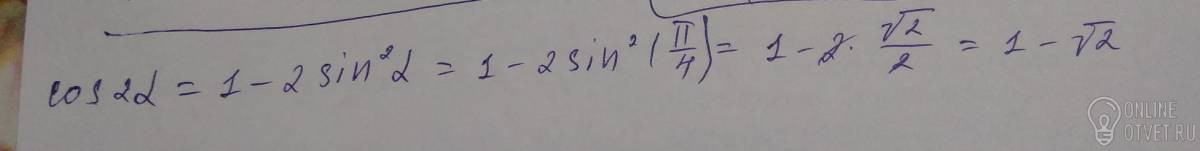 cos2α = 1 - 2sin²α = 1 - 2sin²(π/4) = 1 - 2·√2/2 = 1 - √2
ONLINE
OTVET.RU